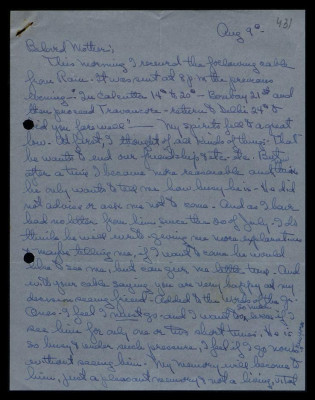 431
Aug 9th
Beloved Mother,
This morning I received the following cable
from Raja. It was sent at 8 p.m. the previous
evening - "In Calcutta 14th to 20th - Bombay 21st and
then proceed Travancore - return to Delhi 24th
did you fare well?" - My spirits fell to a great
low. At first, I thought of all kinds of things: that
he wants to end our friendship, etc. etc. But
after a time I became more reasonable and think
he only wants to tell me how busy he is. He did
not advise or ask me not to come. And as I have
had no letter from him since the 30 of July. I do
think he will write giving me more explanation
& maybe telling me, if I want to come he would
like to see me, but can give me little time. And
with your cable saying you are very happy at my
decision seeing friend - Added to the words of the Gr.
Ones - I feel I must go and I want to go, even if I
see him for only one or two short times. He is
so busy & under such pressure, I feel if I go now
without seeing him, My memory will become to
him, just a pleasant memory & not a living, vital